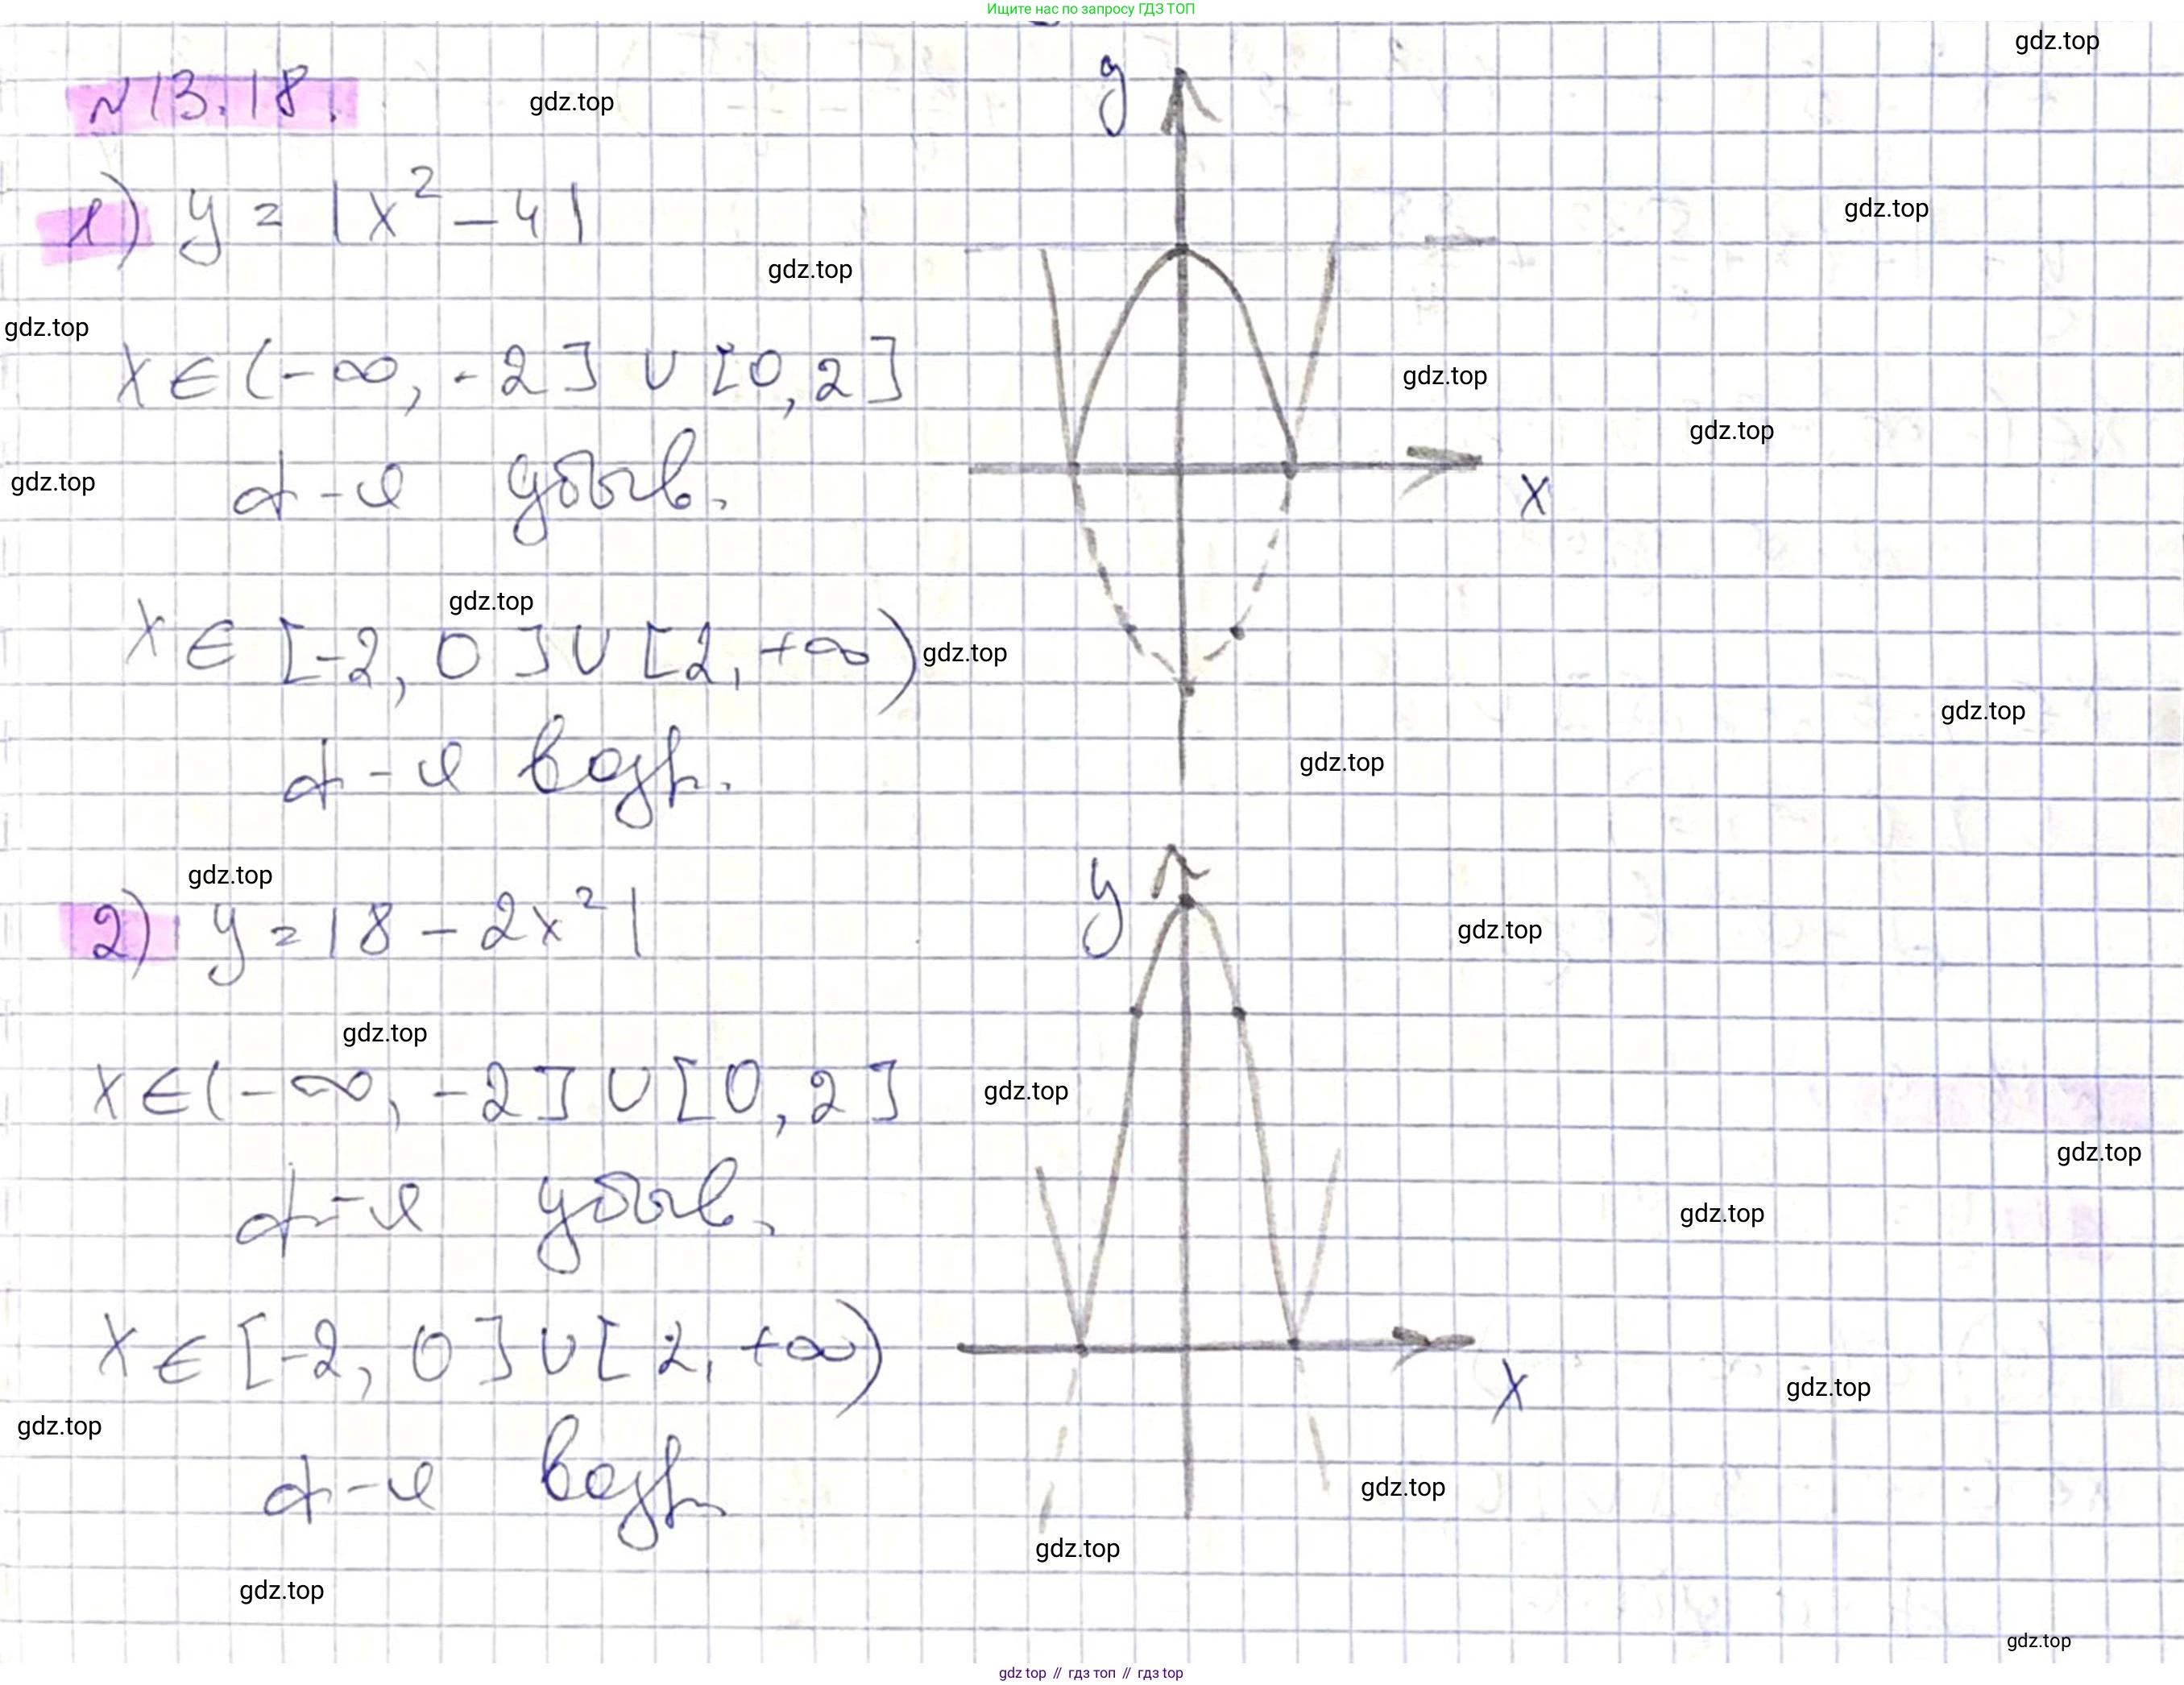 Ищите нас по запросу ГДЗ ТОП
gdz.top
№13.18.
gdz.top
y
1) y = |x² - 4|
gdz.top
gdz.top
gdz.top
x ∈ (-∞, -2] ∪ [0, 2]
gdz.top
gdz.top
gdz.top
ф-я убыв.
x
x ∈ [-2, 0] ∪ [2, +∞)
gdz.top
gdz.top
gdz.top
ф-я возр.
gdz.top
gdz.top
2) y = |8 - 2x²|
y
gdz.top
gdz.top
x ∈ (-∞, -2] ∪ [0, 2]
gdz.top
gdz.top
ф-я убыв.
gdz.top
x ∈ [-2, 0] ∪ [2, +∞)
x
gdz.top
gdz.top
ф-я возр.
gdz.top
gdz.top
gdz.top
gdz.top
gdz top // гдз топ // гдз top